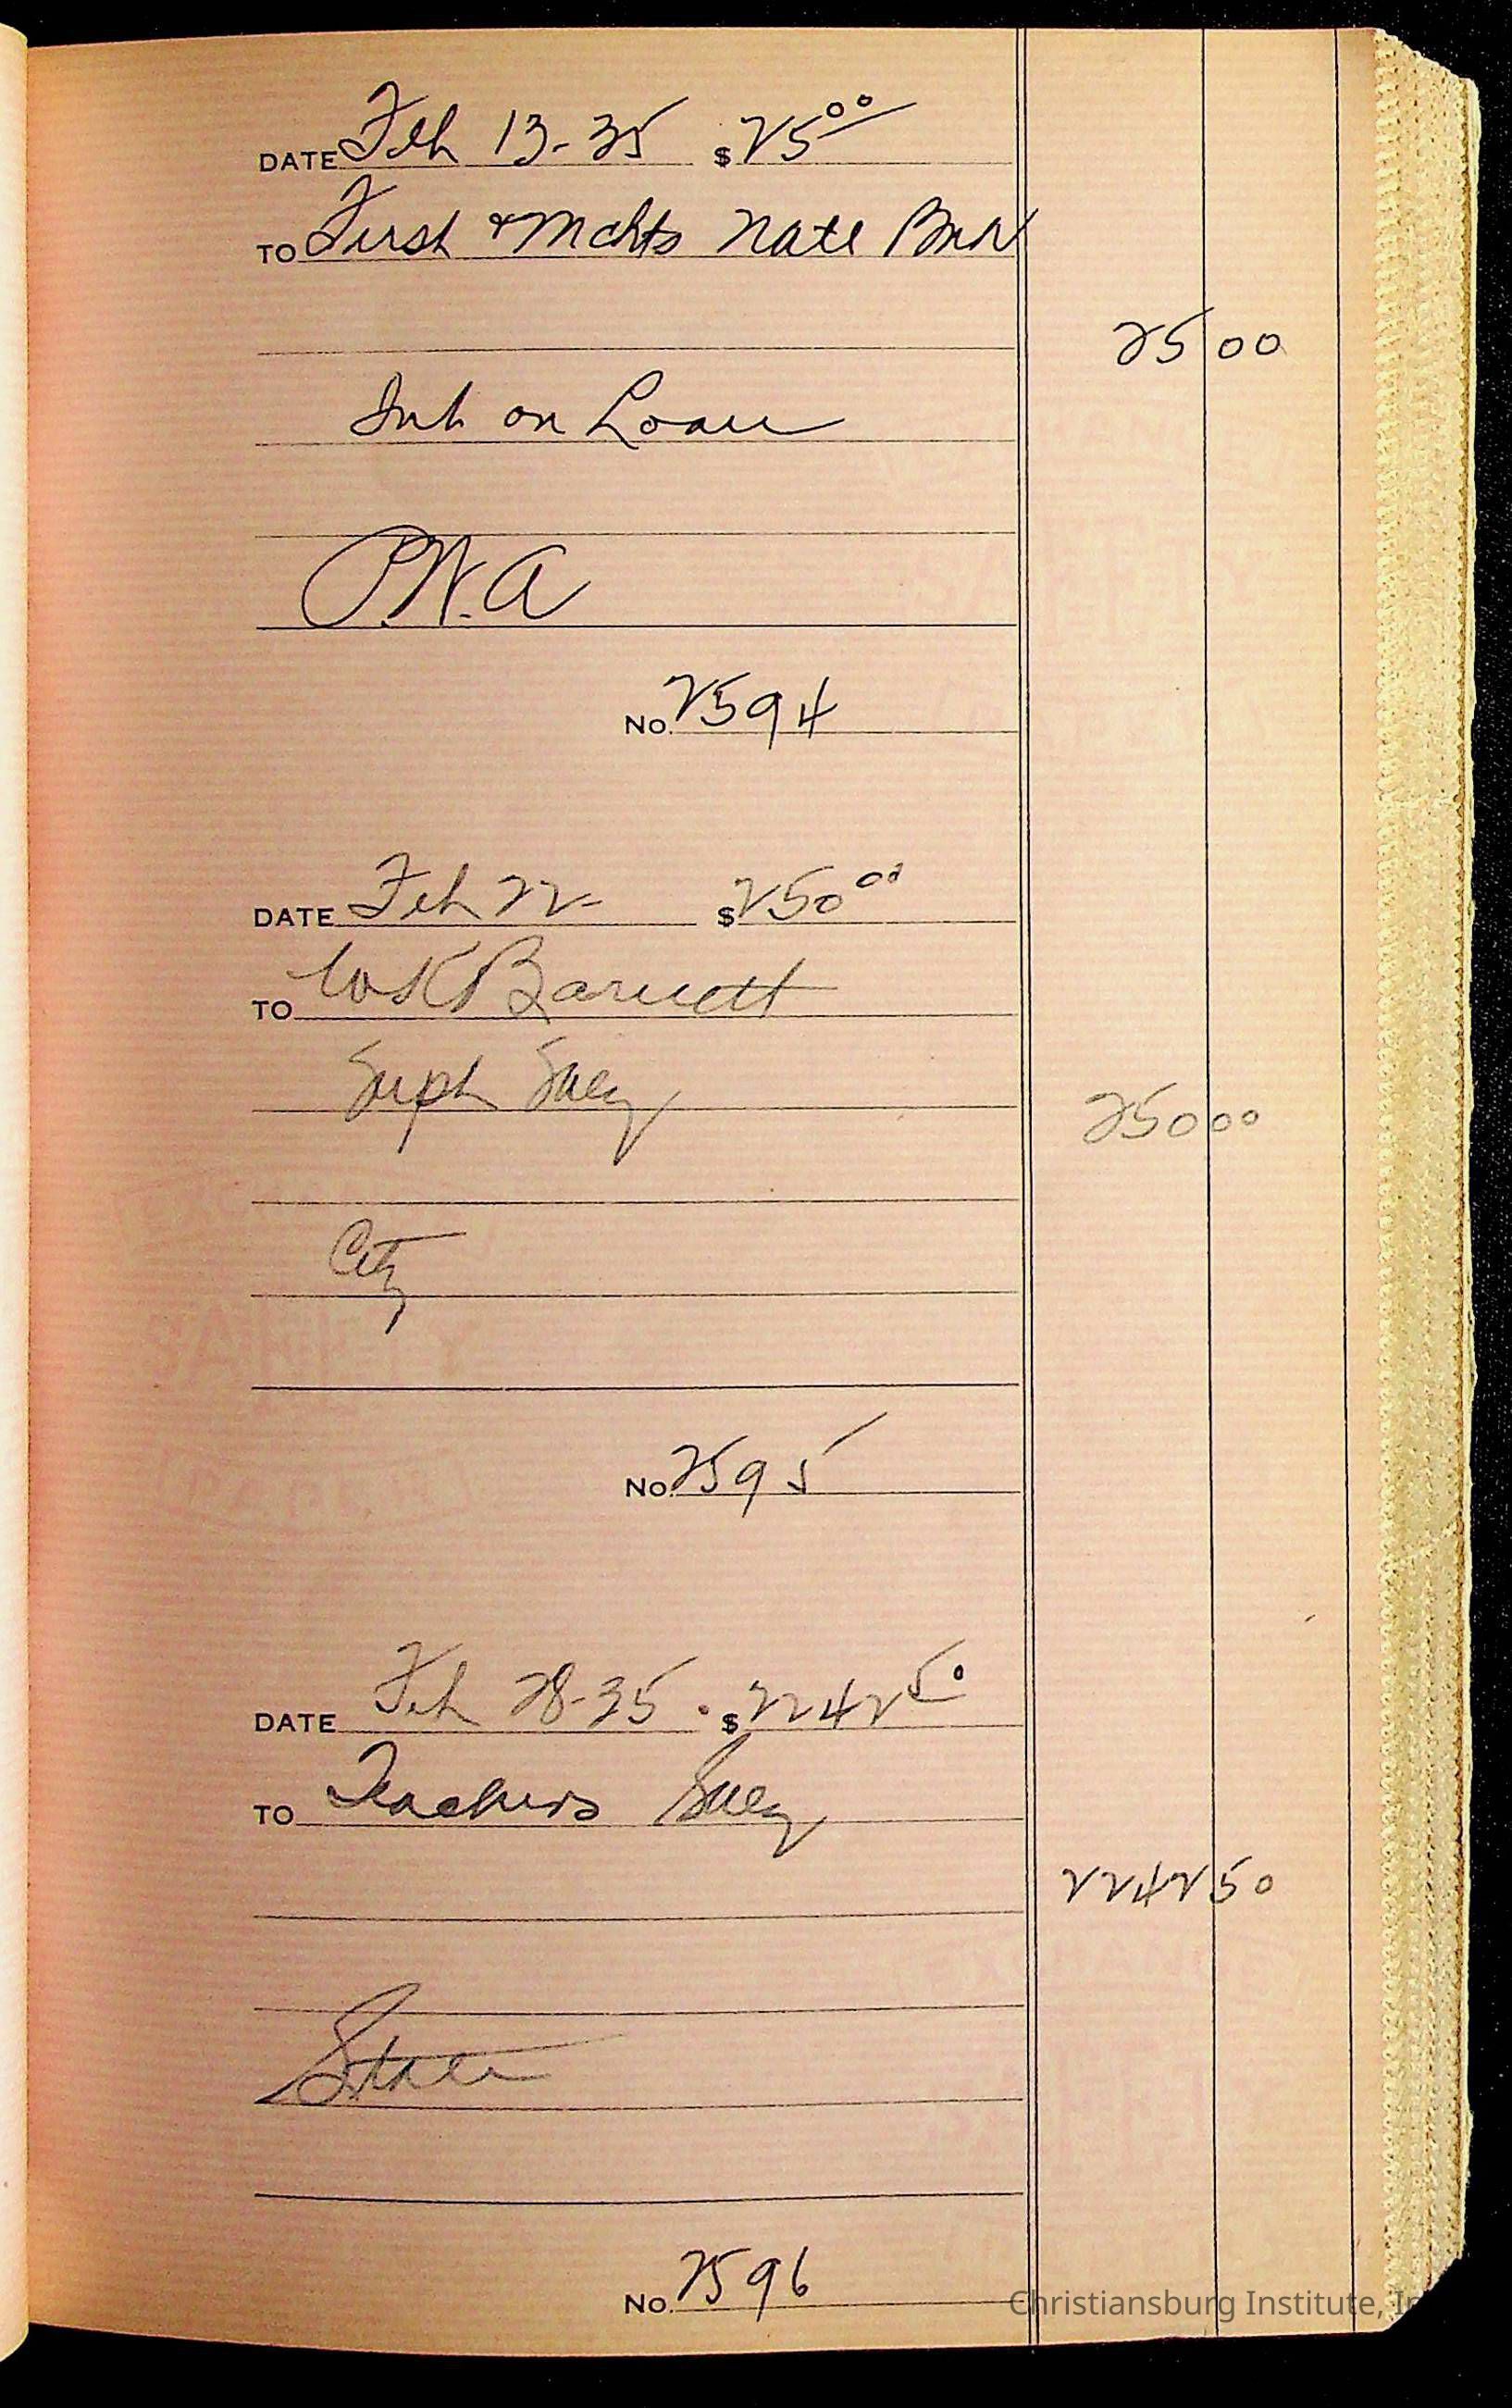 DATE Feb 13-35 $25 00
TO First & Mchts Natl Bnk
25 00
Int on Loan
P.W.A
No. 2594
DATE Feb 22- $250 00
TO W K Barnett
Supt Slry
250 00
City
No. 2595
DATE Feb 28-35. $2242 50
TO Teachers Slry
2242 50
State
No. 2596
Christiansburg Institute, In